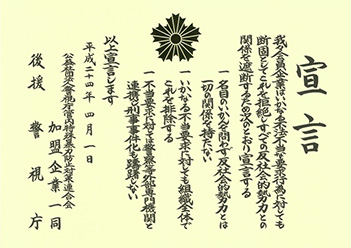 宣言
我々会員企業はいかなる不法不当な要求行為に対しても
断固としてこれを拒絶しすべての反社会的勢力との
関係を遮断するため次のとおり宣言する
一 名目のいかんを問わず反社会的勢力とは
一切の関係を持たない
一 いかなる不当要求に対しても組織全体で
これを排除する
一 不当要求に対しては警察等外部専門機関と
連携し刑事事件化も躊躇しない
以上宣言します
平成二十四年 四月 一日
公益社団法人警視庁管内特殊暴力防止対策連合会
加盟企業一同
後援 警視庁